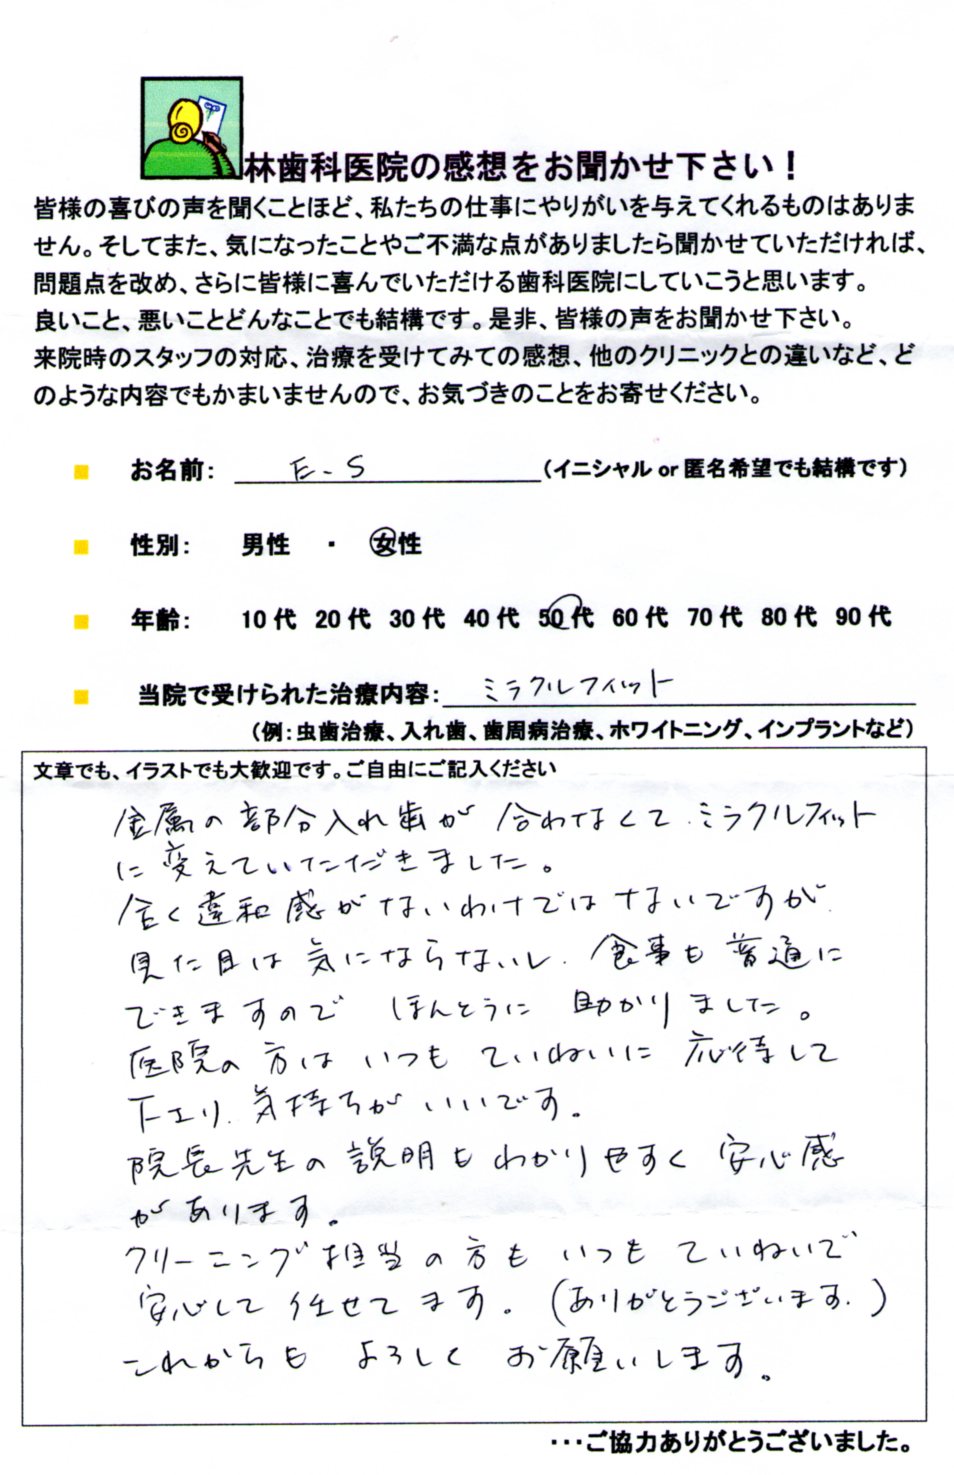 林歯科医院の感想をお聞かせ下さい！
皆様の喜びの声を聞くことほど、私たちの仕事にやりがいを与えてくれるものはありま
せん。そしてまた、気になったことやご不満な点がありましたら聞かせていただければ、
問題点を改め、さらに皆様に喜んでいただける歯科医院にしていこうと思います。
良いこと、悪いことどんなことでも結構です。是非、皆様の声をお聞かせ下さい。
来院時のスタッフの対応、治療を受けてみての感想、他のクリニックとの違いなど、ど
のような内容でもかまいませんので、お気づきのことをお寄せください。
お名前： E-S （イニシャル or 匿名希望でも結構です）
性別： 男性 ・ 女性
年齢： 10代 20代 30代 40代 50代 60代 70代 80代 90代
当院で受けられた治療内容： ミラクルフィット
（例：虫歯治療、入れ歯、歯周病治療、ホワイトニング、インプラントなど）
文章でも、イラストでも大歓迎です。ご自由にご記入ください
金属の部分入れ歯が 合わなくて、ミラクルフィット
に変えていただきました。
全く違和感がないわけではないですが、
見た目は気にならないし、食事も普通に
できますので ほんとうに 助かりました。
医院の方は いつも ていねいに 応待して
下さり、気持ちが いいです。
院長先生の説明もわかりやすく 安心感
があります。
クリーニング担当の方も いつも ていねいで
安心して 任せてます。（ありがとうございます。）
これからも よろしく お願いします。
…ご協力ありがとうございました。